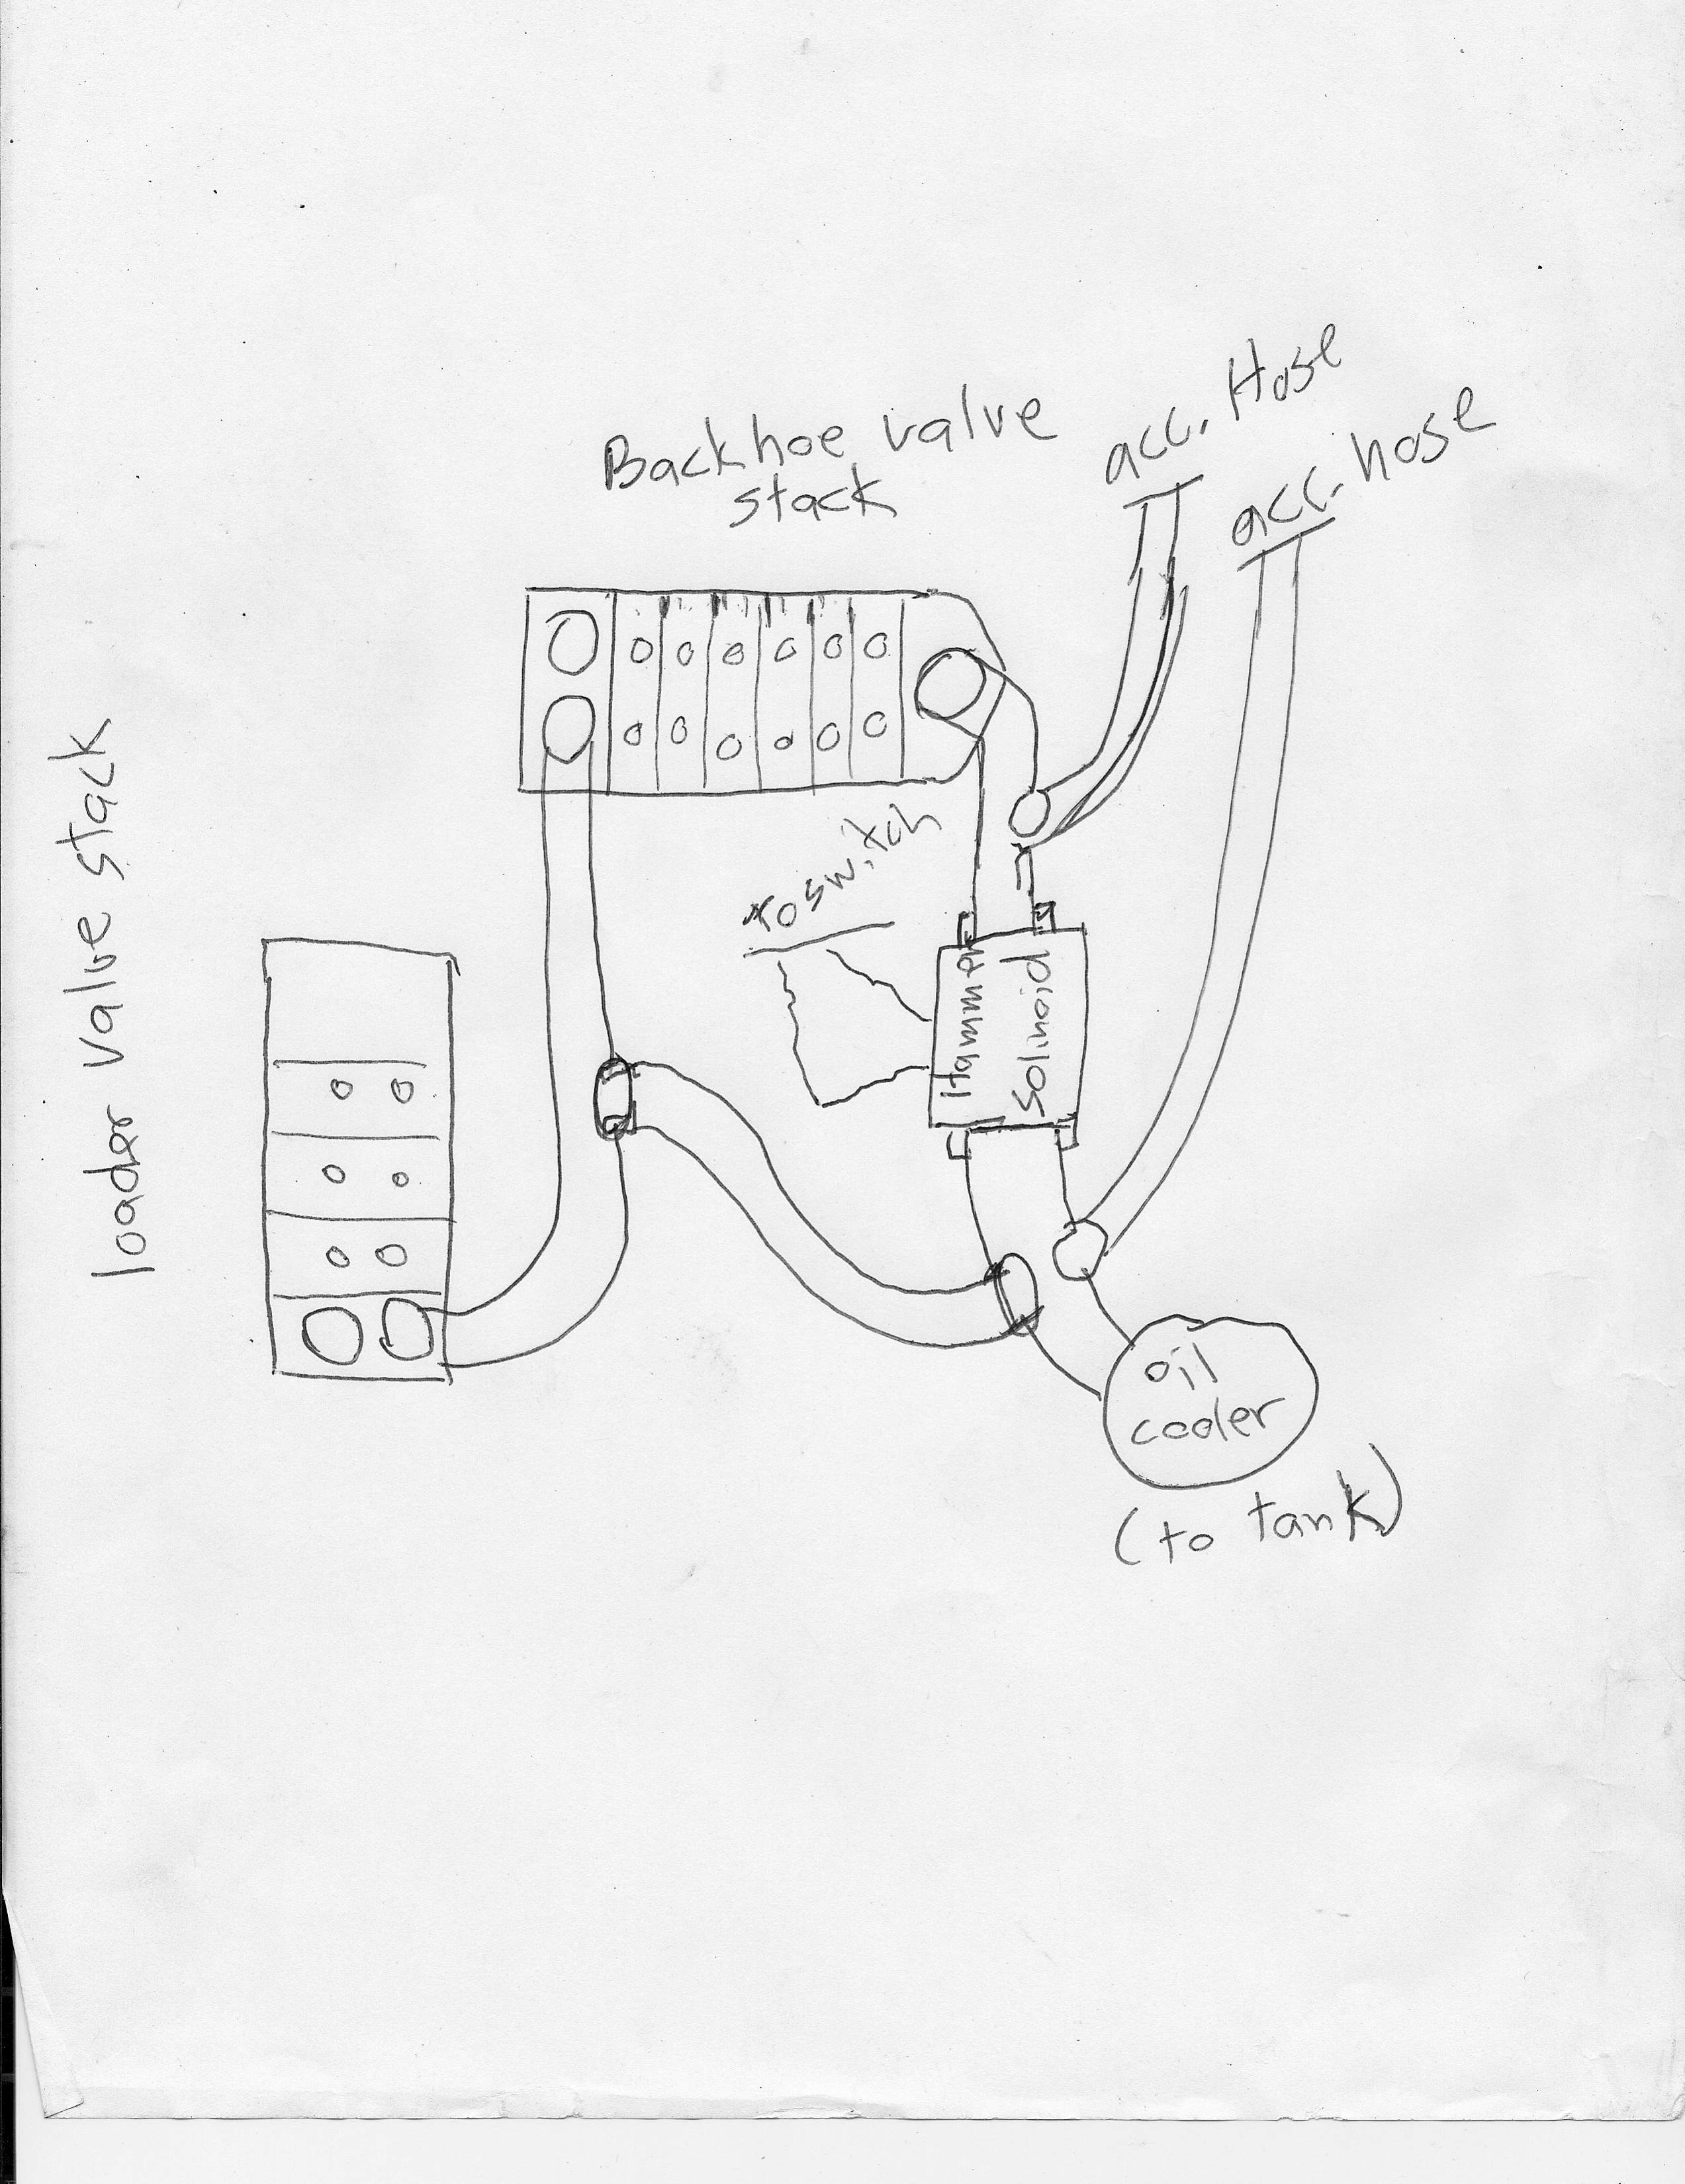 Backhoe valve
stack
acc. Hose
acc. hose
loader valve stack
to switch
Hammer
Solinoid
oil
cooler
(to tank)